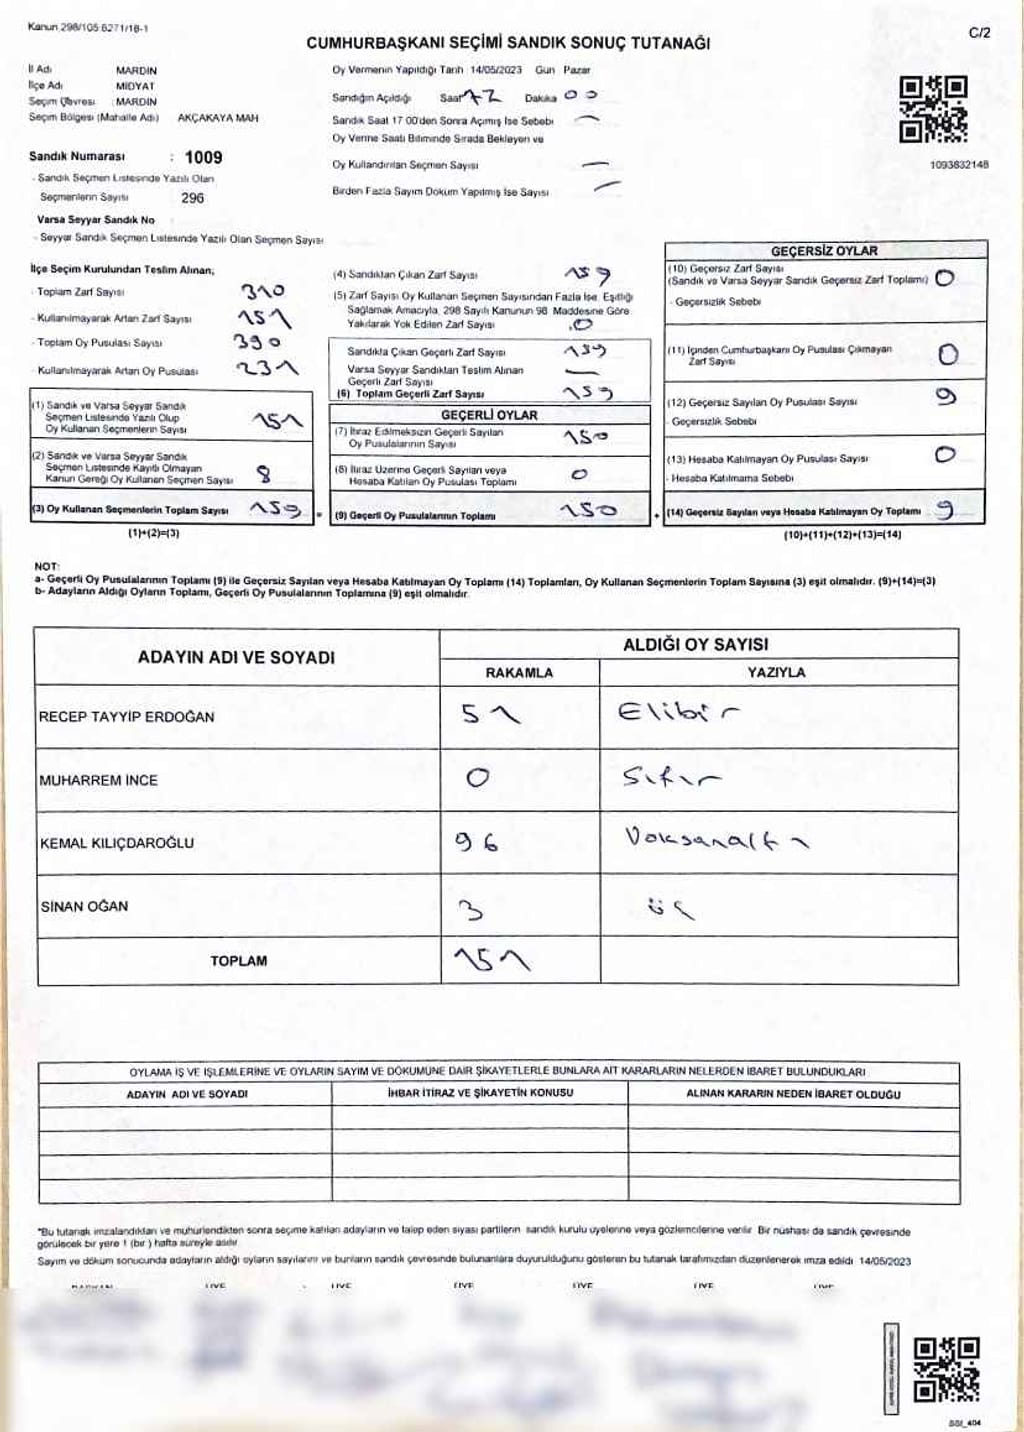 Kanun 298/105 6271/18-1
C/2
CUMHURBAŞKANI SEÇİMİ SANDIK SONUÇ TUTANAĞI
İl Adı MARDİN
İlçe Adı MİDYAT
Seçim Çevresi : MARDİN
Seçim Bölgesi (Mahalle Adı) AKÇAKAYA MAH
Sandık Numarası : 1009
- Sandık Seçmen Listesinde Yazılı Olan
Seçmenlerin Sayısı 296
Varsa Seyyar Sandık No
- Seyyar Sandık Seçmen Listesinde Yazılı Olan Seçmen Sayısı
Oy Vermenin Yapıldığı Tarih 14/05/2023 Gün Pazar
Sandığın Açıldığı Saat 17 Dakika 00
Sandık Saat 17 00'den Sonra Açımış İse Sebebi —
Oy Verme Saati Bitiminde Sırada Bekleyen ve
Oy Kullandırılan Seçmen Sayısı —
Birden Fazla Sayım Döküm Yapılmış İse Sayısı —
1093832148
İlçe Seçim Kurulundan Teslim Alınan;
- Toplam Zarf Sayısı 310
- Kullanılmayarak Artan Zarf Sayısı 151
- Toplam Oy Pusulası Sayısı 390
- Kullanılmayarak Artan Oy Pusulası 231
(1) Sandık ve Varsa Seyyar Sandık
Seçmen Listesinde Yazılı Olup
Oy Kullanan Seçmenlerin Sayısı 151
(2) Sandık ve Varsa Seyyar Sandık
Seçmen Listesinde Kayıtlı Olmayan
Kanun Gereği Oy Kullanan Seçmen Sayısı 8
(3) Oy Kullanan Seçmenlerin Toplam Sayısı 159 =
(1)+(2)=(3)
(4) Sandıktan Çıkan Zarf Sayısı 159
(5) Zarf Sayısı Oy Kullanan Seçmen Sayısından Fazla İse, Eşitliği
Sağlamak Amacıyla, 298 Sayılı Kanunun 98 Maddesine Göre
Yakılarak Yok Edilen Zarf Sayısı 0
Sandıkta Çıkan Geçerli Zarf Sayısı 159
Varsa Seyyar Sandıktan Teslim Alınan
Geçerli Zarf Sayısı —
(6) Toplam Geçerli Zarf Sayısı 159
GEÇERLİ OYLAR
(7) İtiraz Edilmeksizin Geçerli Sayılan
Oy Pusulalarının Sayısı 150
(8) İtiraz Üzerine Geçerli Sayılan veya
Hesaba Katılan Oy Pusulası Toplamı 0
(9) Geçerli Oy Pusulalarının Toplamı 150 +
GEÇERSİZ OYLAR
(10) Geçersiz Zarf Sayısı
(Sandık ve Varsa Seyyar Sandık Geçersiz Zarf Toplamı) 0
- Geçersizlik Sebebi
(11) İçinden Cumhurbaşkanı Oy Pusulası Çıkmayan
Zarf Sayısı 0
(12) Geçersiz Sayılan Oy Pusulası Sayısı 9
- Geçersizlik Sebebi
(13) Hesaba Katılmayan Oy Pusulası Sayısı 0
- Hesaba Katılmama Sebebi
(14) Geçersiz Sayılan veya Hesaba Katılmayan Oy Toplamı 9
(10)+(11)+(12)+(13)=(14)
NOT:
a- Geçerli Oy Pusulalarının Toplamı (9) ile Geçersiz Sayılan veya Hesaba Katılmayan Oy Toplamı (14) Toplamları, Oy Kullanan Seçmenlerin Toplam Sayısına (3) eşit olmalıdır. (9)+(14)=(3)
b- Adayların Aldığı Oyların Toplamı, Geçerli Oy Pusulalarının Toplamına (9) eşit olmalıdır.
ADAYIN ADI VE SOYADI
ALDIĞI OY SAYISI
RAKAMLA YAZIYLA
RECEP TAYYİP ERDOĞAN 51 Elibir
MUHARREM İNCE 0 Sıfır
KEMAL KILIÇDAROĞLU 96 Doksanaltı
SİNAN OĞAN 3 üç
TOPLAM 151
OYLAMA İŞ VE İŞLEMLERİNE VE OYLARIN SAYIM VE DÖKÜMÜNE DAİR ŞİKAYETLERLE BUNLARA AİT KARARLARIN NELERDEN İBARET BULUNDUKLARI
ADAYIN ADI VE SOYADI İHBAR İTİRAZ VE ŞİKAYETİN KONUSU ALINAN KARARIN NEDEN İBARET OLDUĞU
*Bu tutanak imzalandıktan ve mühürlendikten sonra seçime katılan adayların ve talep eden siyasi partilerin sandık kurulu üyelerine veya gözlemcilerine verilir Bir nüshası da sandık çevresinde
görülecek bir yere 1 (bir ) hafta süreyle asılır
Sayım ve döküm sonucunda adayların aldığı oyların sayılarını ve bunların sandık çevresinde bulunanlara duyurulduğunu gösteren bu tutanak tarafımızdan düzenlenerek imza edildi 14/05/2023
BAŞKAN ÜYE ÜYE ÜYE ÜYE ÜYE ÜYE
SSI_404